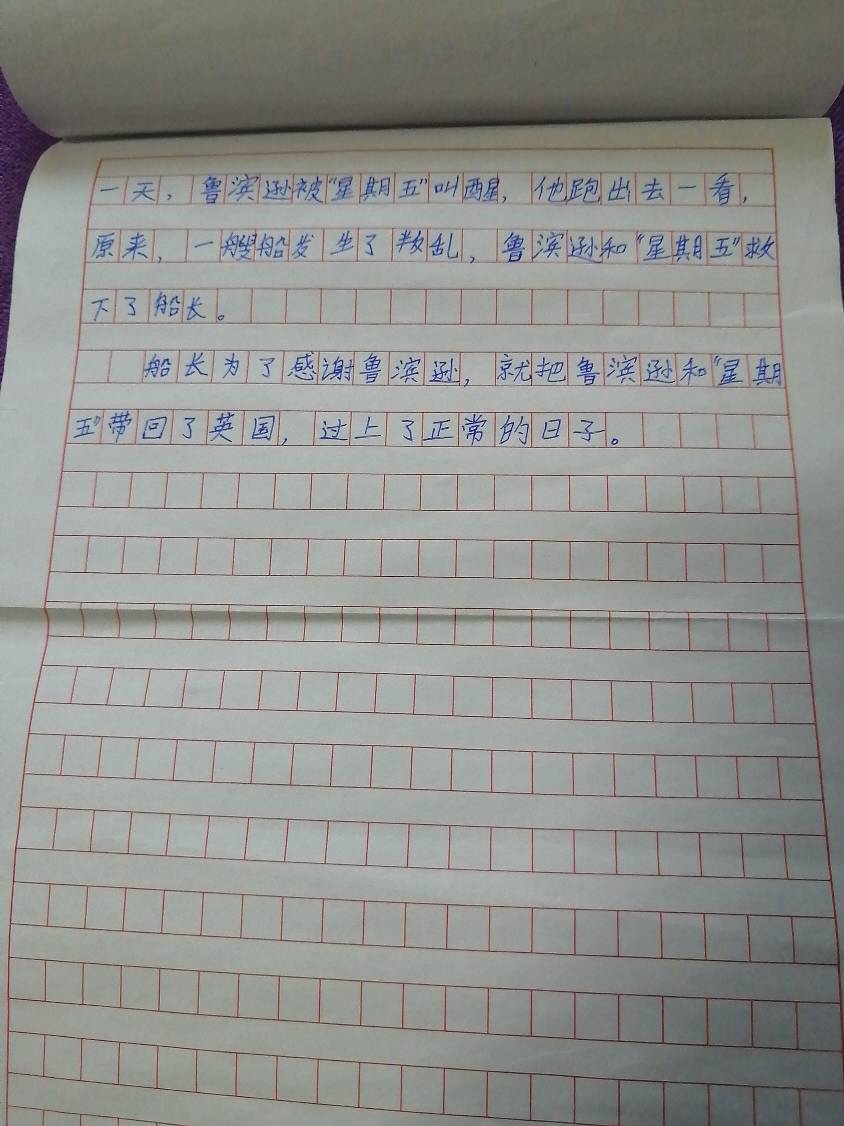 一天，鲁滨逊被“星期五”叫醒，他跑出去一看，
原来，一艘船发生了叛乱，鲁滨逊和“星期五”救
下了船长。
船长为了感谢鲁滨逊，就把鲁滨逊和“星期
五”带回了英国，过上了正常的日子。